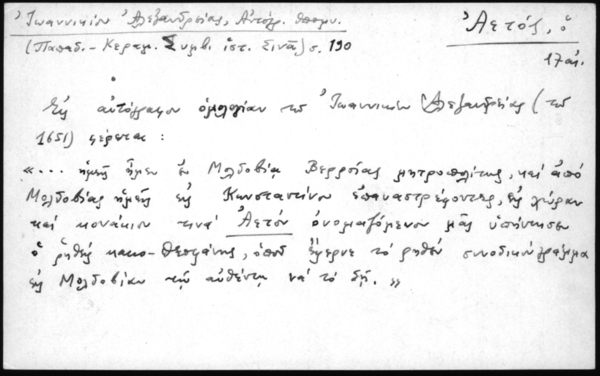 Ἰωαννικίου Ἀλεξανδρείας, Αὐτόγρ. ὑπομν.
(Παπαδ.-Κεραμ. Συμβ. ἱστ. Σινᾶ) σ. 190
Ἀετός, ὁ
17 αἰ.
Εἰς αὐτόγραφον ὁμολογίαν τοῦ Ἰωαννικίου Ἀλεξανδρείας (τοῦ
1651) φέρεται:
«... ἡμεῖς ἤμεν ἐν Μολδοβίᾳ Βερροίας μητροπολίτης, καὶ ἀπὸ
Μολδοβίας ἡμεῖς εἰς Κωνσταντίνου ἐπαναστρέφοντες, εἰς χώραν
καὶ κονάκιον τινὰ Ἀετὸν ὀνομαζόμενον μᾶς ὑπήντησεν
ὁ ῥηθεὶς κακο-Θεοφάνης, ὁποῦ ἔφερνε τὸ ῥηθὲν συνοδικὸν γράμμα
εἰς Μολδοβίαν τῷ αὐθέντῃ νὰ τὸ δῇ.»